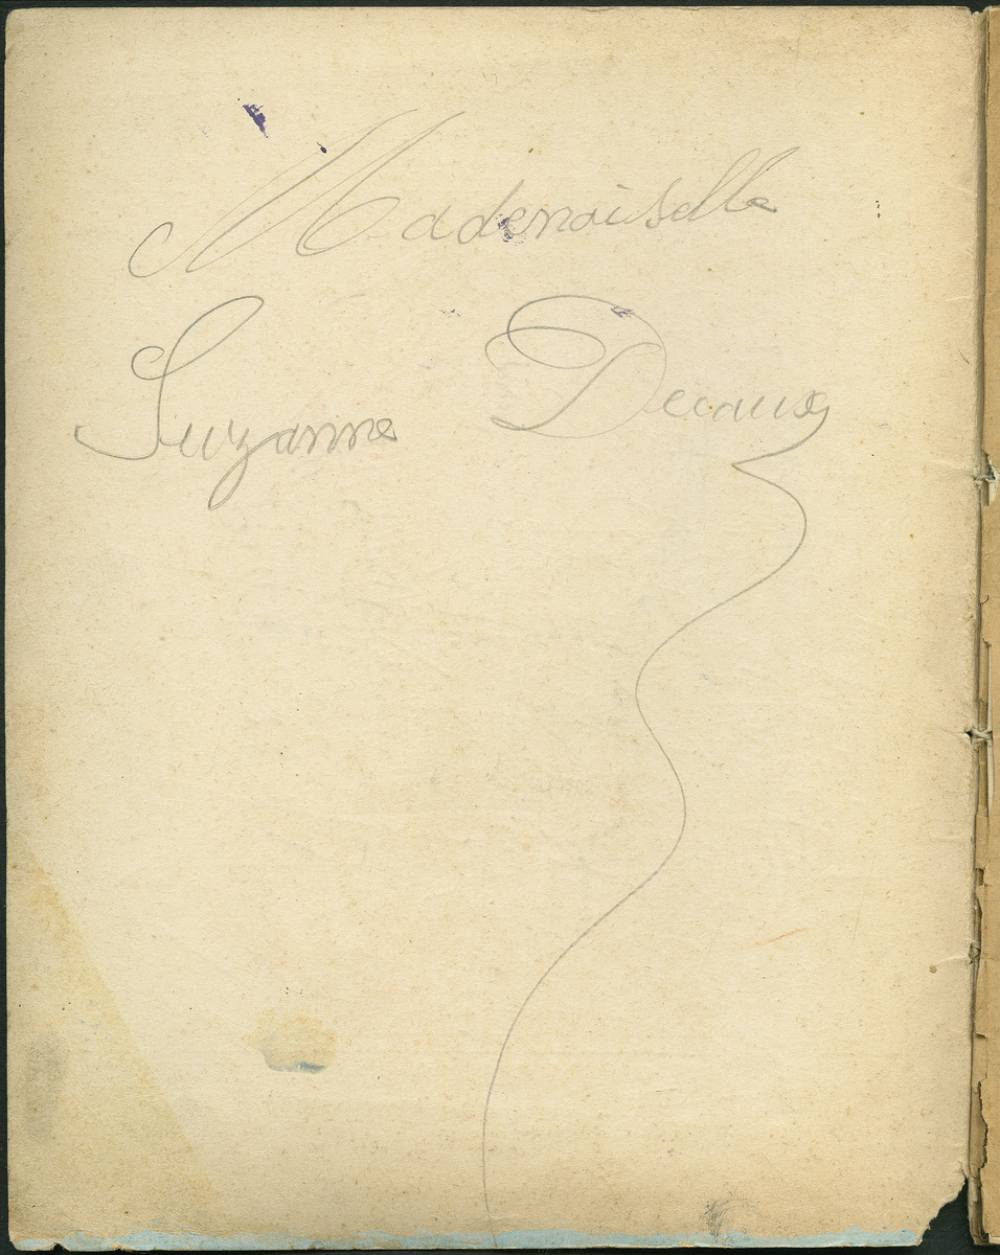 Mademoiselle
Suzanne Decaux